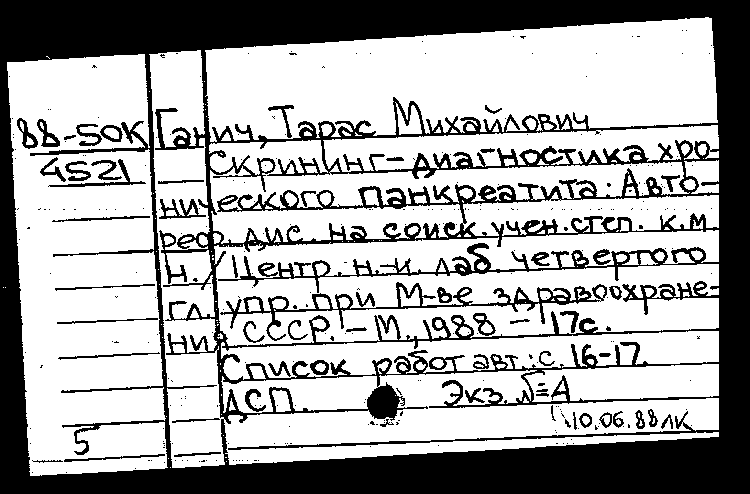 88-50К Ганич, Тарас Михайлович
4521 Скрининг-диагностика хро-
нического панкреатита: Авто-
реф. дис. на соиск. учен. степ. к.м.
н. / Центр. н.-и. лаб. четвертого
гл. упр. при М-ве здравоохране-
ния СССР. - М., 1988 - 17с.
Список работ авт.: с. 16-17.
ДСП. Экз. №=А
10.06.88 ЛК
5